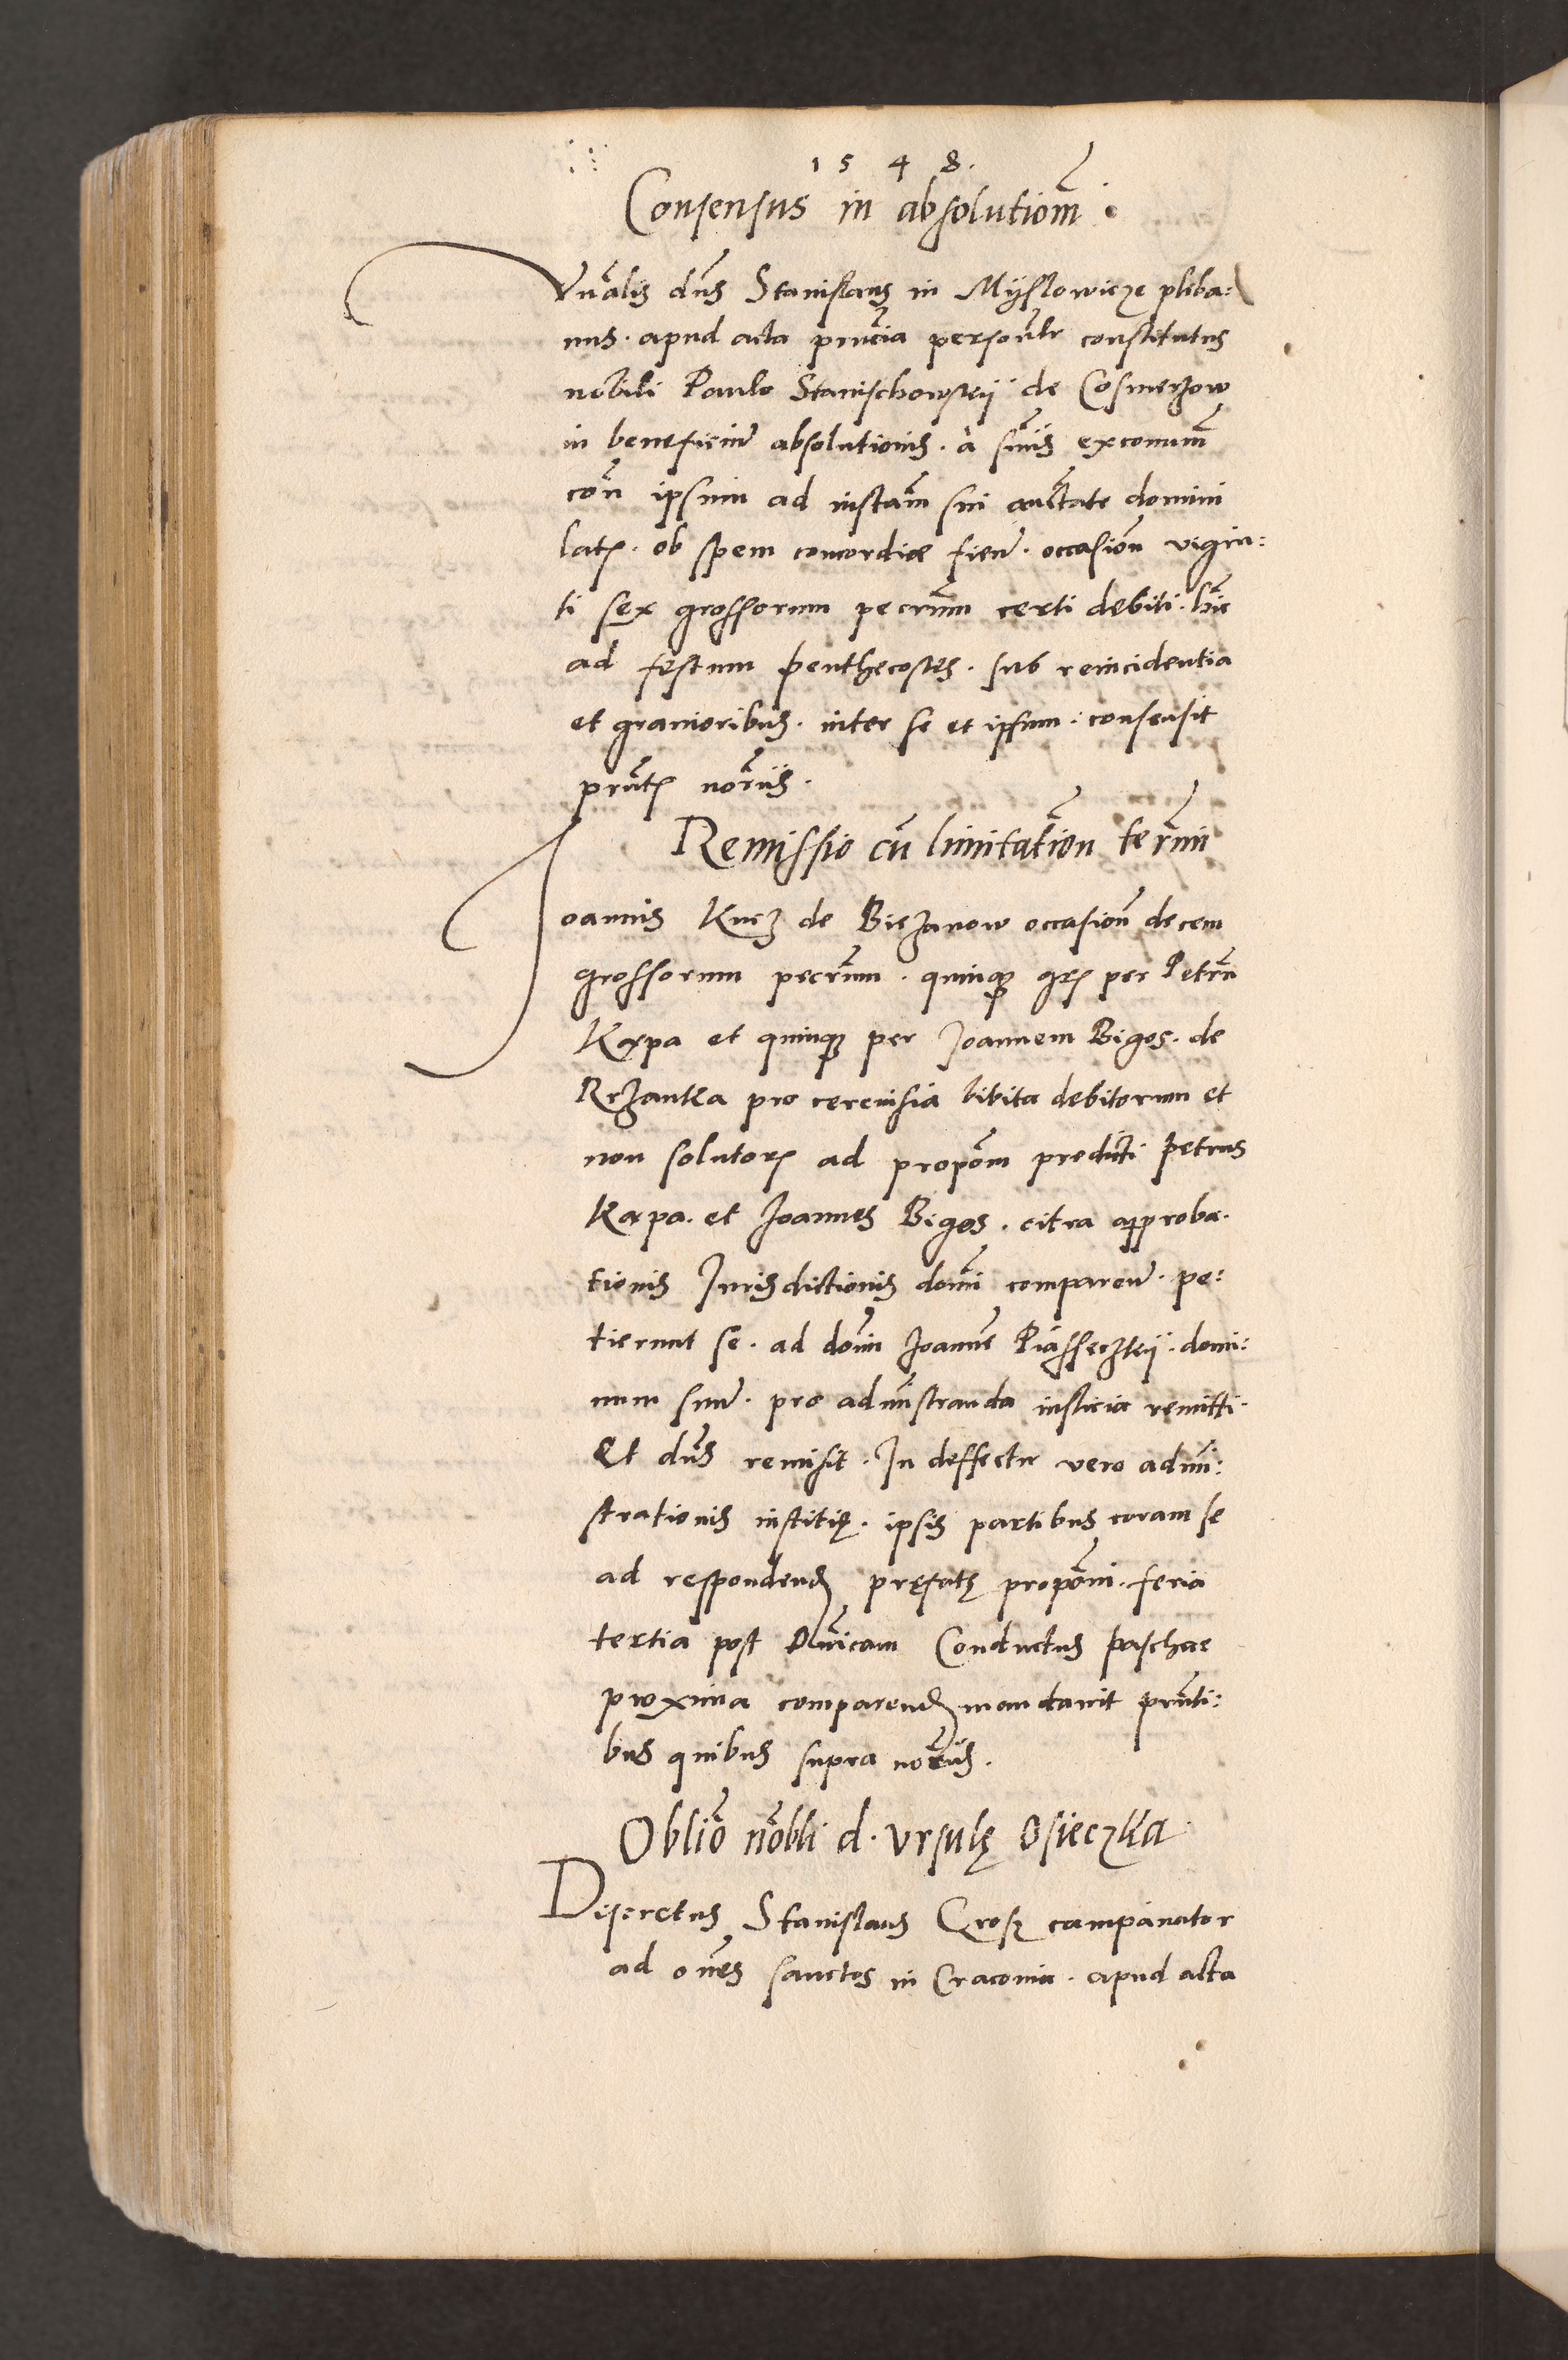 1548.
Consensus in absolutiom̃
Vnãlis dñs Stanislaus in Myslowicze pleba:
nus. apud acta pñcia personlr constitutus
nobili Paulo Stanischowskij de Cosmerzow
in beneficium absolutionis. à sñiis excomunm̃
con̄ ipsum ad instam̃ sui auctate domini
latis. ob spem concordiæ fien. occasion̄ vigin:
ti sex grossorum pecun̄m certi debiti. hinc
ad festum penthecostes. sub reincidentia
et grauioribus. inter se et ipsum: consensit
pñtibus notariis.
Remissio cū limitation̄ term̃i
Joannis Kucz de Biezanow occasion̄ decem
grossorum pecun̄m. quinque grs per Petrū
Karpa et quinque per Joannem Bigos. de
Rzantka pro cereuisia bibita debitorum et
non solutorum ad propom̃ predicti petrus
Karpa. et Joannes Bigos. citra approba.
tionis Jurisdictionis dom̃i comparen. pe:
tierunt se. ad dom̃ Joanne Piassecztij. domi:
num suum. pro admĩstranda iusticia remitti.
Et dñs remisit. In deffectu vero admĩ:
strationis iustitię. ipsis partibus coram se
ad respondend pręfatę propom̃i. feria
tertia post Dñicam Conductus paschae
proxima comparend mandauit pñti:
bus quibus supra notariis.
Oblĩo nobli d. Vrsulę Osieczka
Discretus Stanislaus Crosz campanator
ad oñes sanctos in Cracouia. apud acta